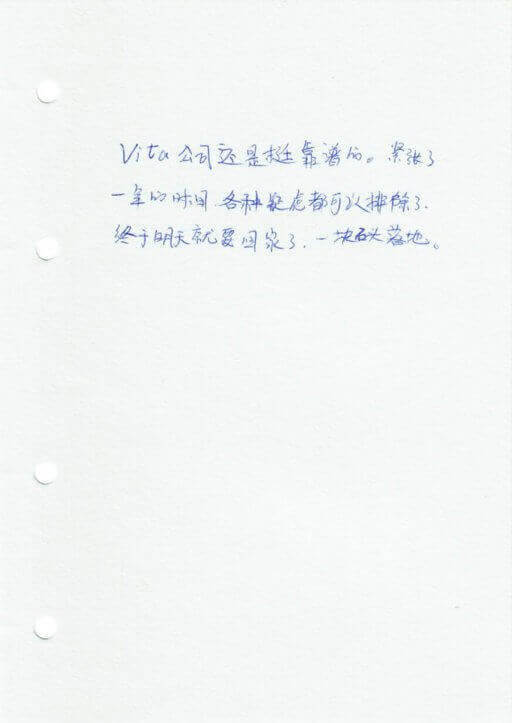 Vita 公司还是挺靠谱的。紧张了
一年的时间,各种疑虑都可以排除了,
终于明天就要回家了,一块石头落地。